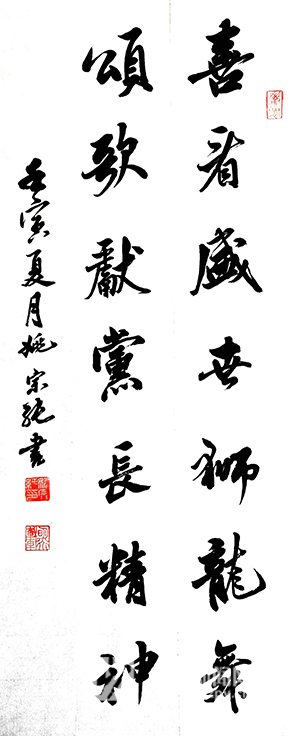 喜看盛世獅龍舞
頌歌獻黨長精神
壬寅夏月姚宗純書